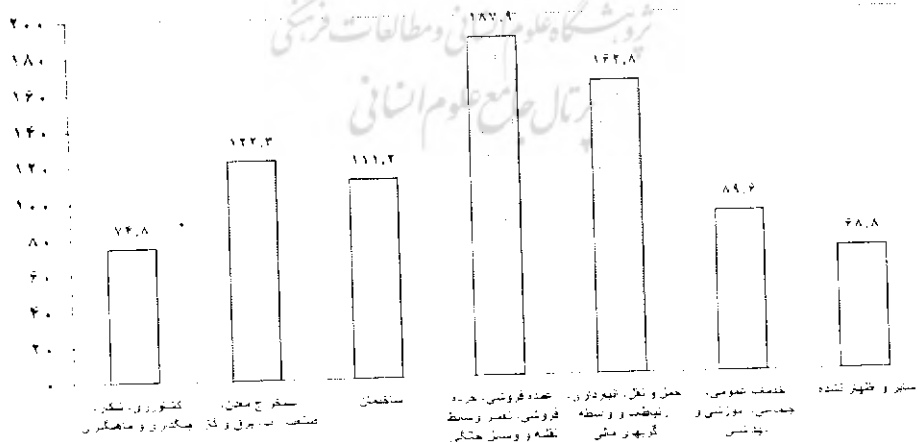 پژوهشگاه علوم انسانی و مطالعات فرهنگی
پرتال جامع علوم انسانی
۲۰۰
۱۸۰
۱۶۰
۱۴۰
۱۲۰
۱۰۰
۸۰
۶۰
۴۰
۲۰
۰
۷۴,۸
۱۲۲,۳
۱۱۱,۲
۱۸۷,۹
۱۶۲,۸
۸۹,۶
۶۸,۸
کشاورزی، شکار،
جنگلداری و ماهیگیری
معدن،
صنعت آب، برق و گاز
ساختمان
عمده فروشی، خرده
فروشی، تعمیر وسایط
نقلیه و وسایل خانگی
حمل و نقل، انبارداری،
ارتباطات و واسطه
گریهای مالی
خدمات عمومی،
اجتماعی، آموزشی و
بهداشتی
سایر و اظهار نشده